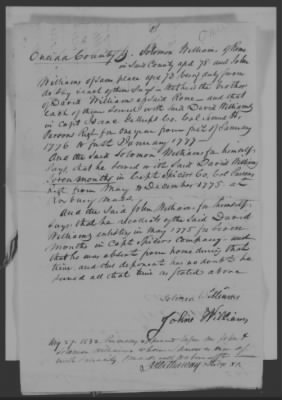 Oneida County Ss. Solomon Williams of Rome
in said County aged 75 and John
Williams of same place aged 72 being duly sworn
do say each of them says that he is the brother
of David Williams of said Rome and that
each of them served with said David Williams
in Capt Isaac Gallups Co. Col. Samuel H.
Parsons Regt for one year from first of January
1776 to first January 1777
And the said Solomon Williams for himself
says, that he served with said David Williams
seven months in Capt Spicers Co. Col Parsons
Regt from May to December 1775 at
Roxbury Mass.
And the said John Williams for himself
says that he recollects of the said David
Williams enlisting in May 1775 for seven
months in Capt Spicers Company and
that he was absent from home during that
time and this deponent has no doubt he
served all that time as stated above
Solomon Williams
John Williams
1832 personally appeared before me John &
Solomon Williams whom I know